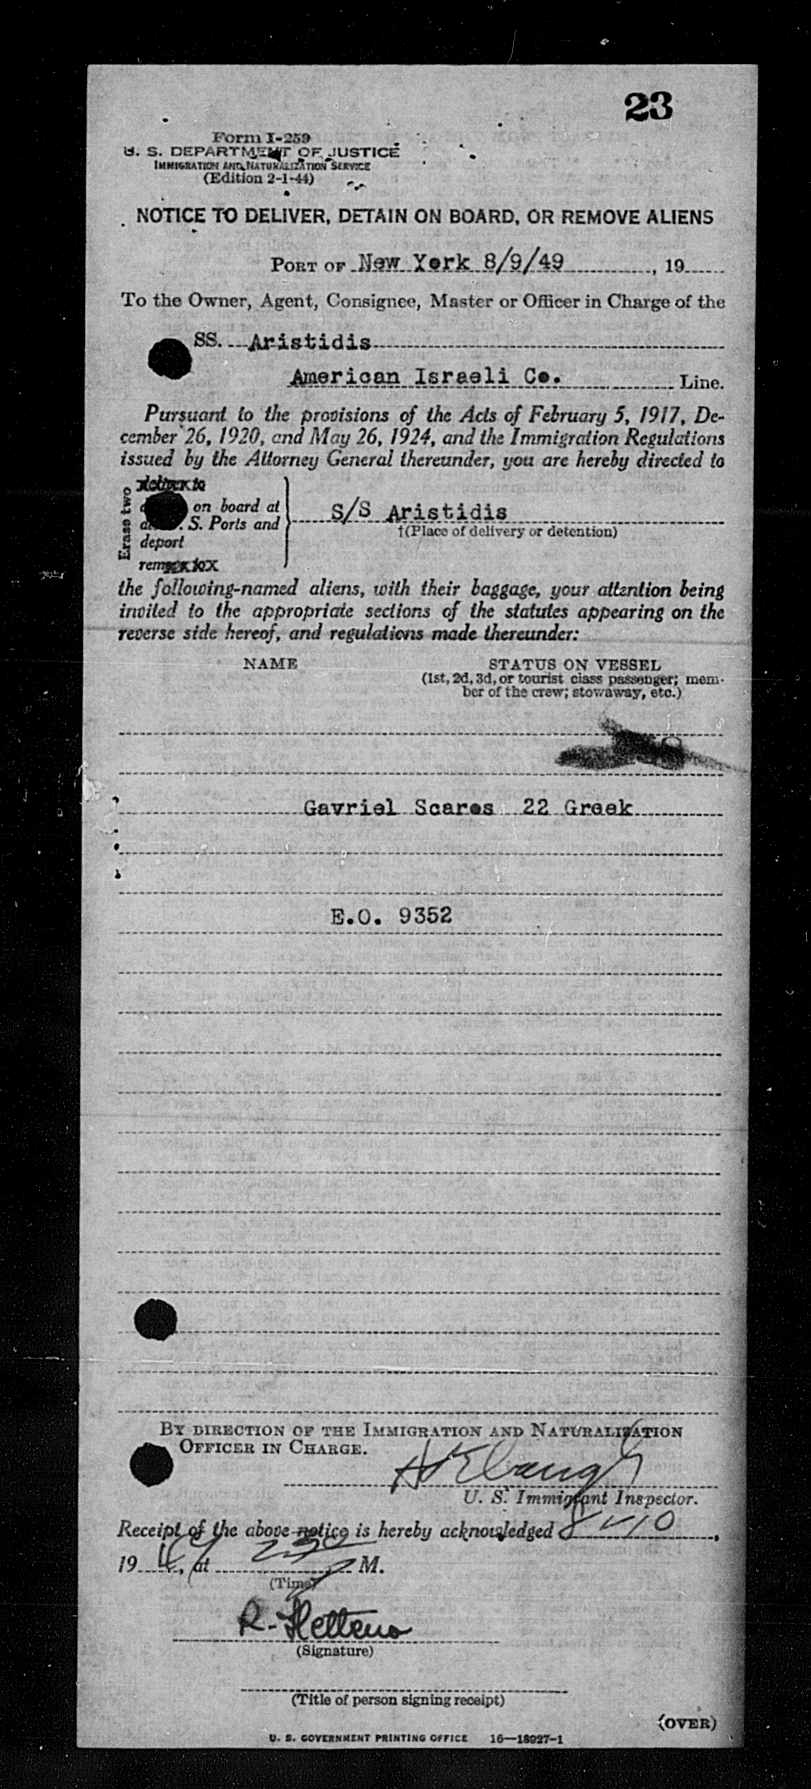 23
Form I-259
U. S. DEPARTMENT OF JUSTICE
IMMIGRATION AND NATURALIZATION SERVICE
(Edition 2-1-44)
NOTICE TO DELIVER, DETAIN ON BOARD, OR REMOVE ALIENS
PORT OF New York 8/9/49, 19
To the Owner, Agent, Consignee, Master or Officer in Charge of the
SS. Aristidis
American Israeli Co. Line.
Pursuant to the provisions of the Acts of February 5, 1917, De-
cember 26, 1920, and May 26, 1924, and the Immigration Regulations
issued by the Attorney General thereunder, you are hereby directed to
Erase two
deliver to
on board at
S. Ports and
deport
remove to
S/S Aristidis
†(Place of delivery or detention)
the following-named aliens, with their baggage, your attention being
invited to the appropriate sections of the statutes appearing on the
reverse side hereof, and regulations made thereunder:
NAME STATUS ON VESSEL
(1st, 2d, 3d, or tourist class passenger; mem-
ber of the crew; stowaway, etc.)
Gavriel Scares 22 Greek
E.O. 9352
BY DIRECTION OF THE IMMIGRATION AND NATURALIZATION
OFFICER IN CHARGE.
U. S. Immigrant Inspector.
Receipt of the above notice is hereby acknowledged 8-10,
19 49, at 230 P M.
(Time)
R.
(Signature)
(Title of person signing receipt)
(OVER)
U. S. GOVERNMENT PRINTING OFFICE 16—18927-1